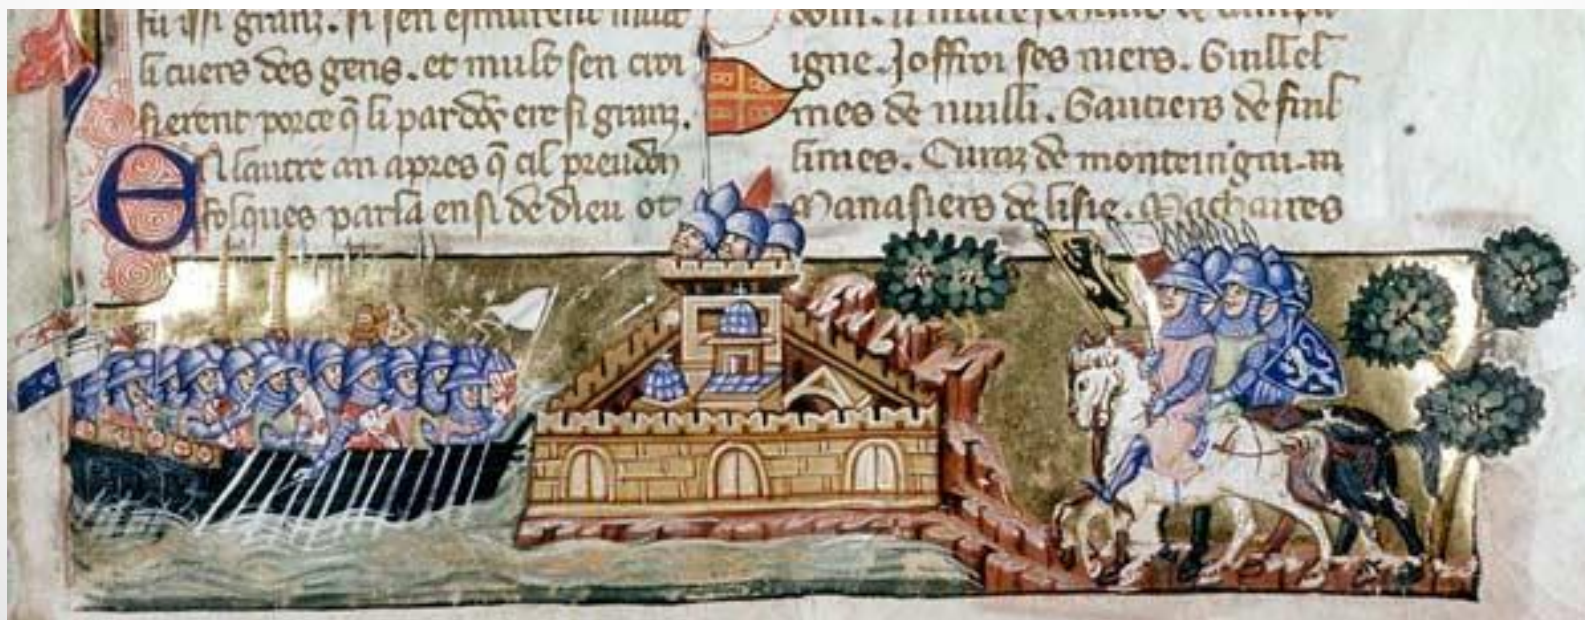 fu issi granz. si sen esmurent mult
li cuers des gens. et mult sen croi
sierent porce q̃ li pardõs ere si granz.
EN lautre an apres q̃ cil preudõ
folques parla ensi de dieu ot
igne. Joffroi ses niers. Guillel
mes de nuilli. Gautiers de fuil
limes. Euraz de monteingni.
Manasiers de lisle. Machaires